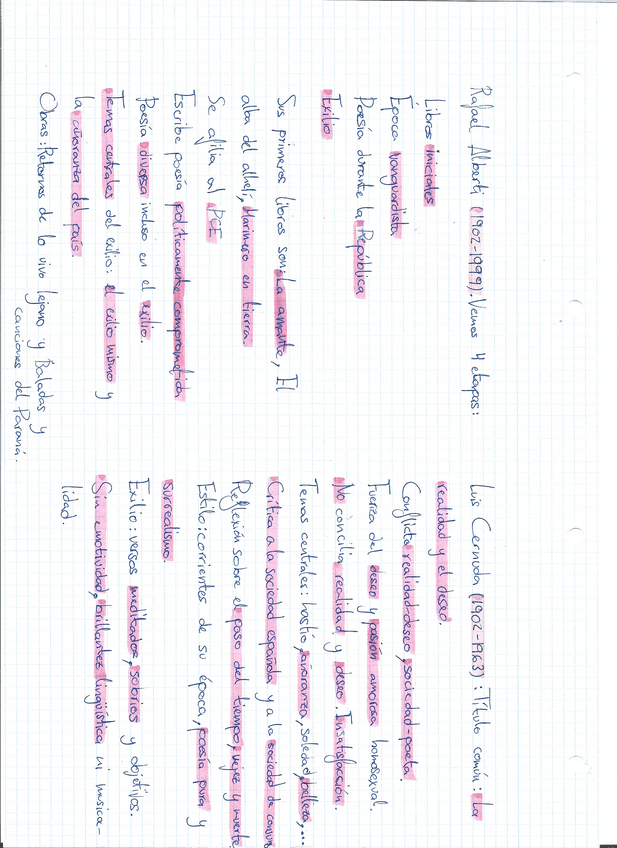 Rafael Alberti (1902-1999). Vemos 4 etapas:
Libros iniciales
Época vanguardista
Poesía durante la República
Exilio
Sus primeros libros son: La amante, El
alba del alhelí, Marinero en tierra.
Se afilia al PCE
Escribe poesía políticamente comprometida
Poesía diversa incluso en el exilio.
Temas centrales del exilio: el exilio mismo y
la añoranza del país.
Obras: Retornos de lo vivo lejano y Baladas y
canciones del Paraná.
Luis Cernuda (1902-1963): Título común: La
realidad y el deseo.
Conflicto realidad-deseo, sociedad-poeta.
Fuerza del deseo y pasión amorosa homosexual.
No concilia realidad y deseo. Insatisfacción.
Temas centrales: hastío, añoranza, soledad, belleza,...
Crítica a la sociedad española y a la sociedad de consumo
Reflexión sobre el paso del tiempo, vejez y muerte
Estilo: corrientes de su época, poesía pura y
surrealismo.
Exilio: versos meditados, sobrios y objetivos.
Sin emotividad, brillantez lingüística ni musica-
lidad.